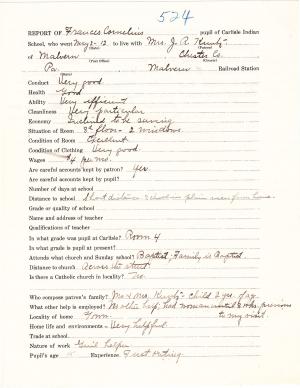 524
REPORT OF Frances Cornelius pupil of Carlisle Indian
School, who went May 2-12 to live with Mrs. J. R.
(Date) (Patron)
of Malvern Chester Co.
(Post Office) (County)
Pa. Malvern Railroad Station
(State)
Conduct Very good
Health Good
Ability Very efficient
Cleanliness Very particular
Economy Inclined to be saving
Situation of Room 3d floor - 2 windows
Condition of Room Excellent
Condition of Clothing Very good
Wages $4 per mo.
Are careful accounts kept by patron? yes
Are careful accounts kept by pupil?
Number of days at school
Distance to school Short distance school in plain view from home.
Grade or quality of school
Name and address of teacher
Qualifications of teacher
In what grade was pupil at Carlisle? Room 4
In what grade is pupil at present?
Attends what church and Sunday school? Baptist, Family is Baptist
Distance to church Across the street
Is there a Catholic church in locality? No.
Who compose patron's family? Mr & Mrs. child 2 yrs. of age
What other help is employed? No other help, had woman until 2 wks. previous
Locality of home Town to my visit.
Home life and environments Very helpful
Trade at school
Nature of work Girl helper
Pupil's age Experience First Outing